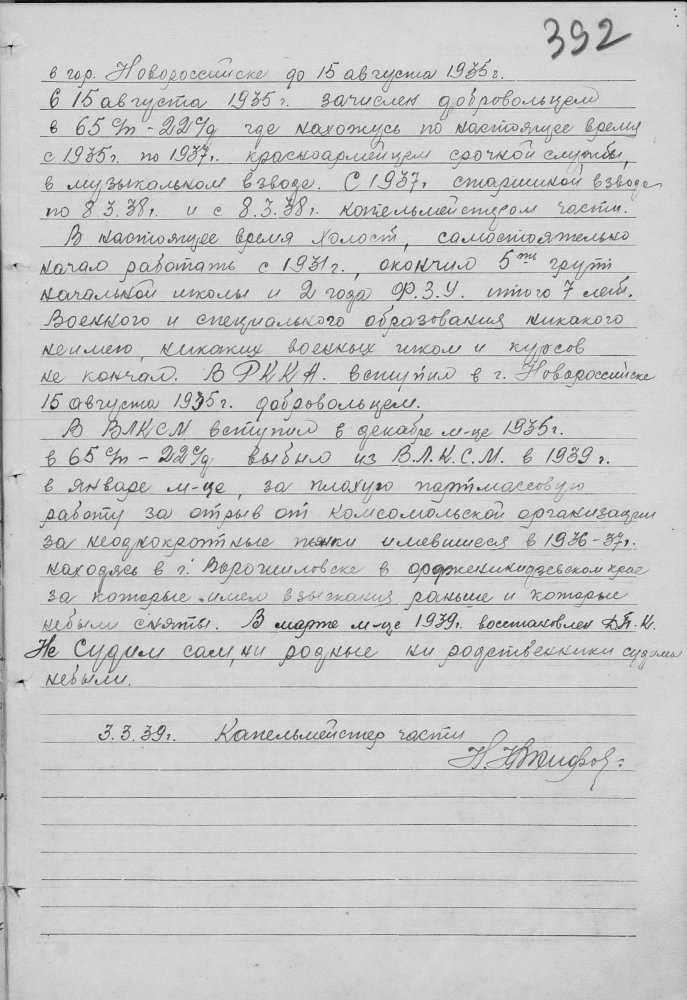 392
в гор. Новороссийске до 15 августа 1935г.
С 15 августа 1935г. зачислен добровольцем
в 65 с/п - 22 с/д где нахожусь по настоящее время
с 1935г. по 1937г. красноармейцем срочной службы,
в музыкальном взводе. С 1937г старшиной взвода
по 8.3.38г. и с 8.3.38г. капельмейстером части.
В настоящее время холост, самостоятельно
начал работать с 1931г., окончил 5ть групп
начальной школы и 2 года Ф.З.У. итого 7 лет.
Военного и специального образования никакого
неимею, никаких военных школ и курсов
не кончал. В РККА. вступил в г. Новороссийске
15 августа 1935г. добровольцем.
В ВЛКСМ вступил в декабре м-це 1935г.
в 65 с/п - 22 с/д выбыл из В.Л.К.С.М. в 1939г.
в январе м-це, за плохую партмассовую
работу за отрыв от комсомольской организации
за неоднократные пянки имевшиеся в 1936-37г.
находясь в г. Ворошиловске в орджоникидзевском крае
за которые имел взыскания раньше и которые
небыли сняты. В марте м-це 1939г. восстановлен
Не судим сам, ни родные ни родственники судимы
небыли.
3.3.39г. Капельмейстер части